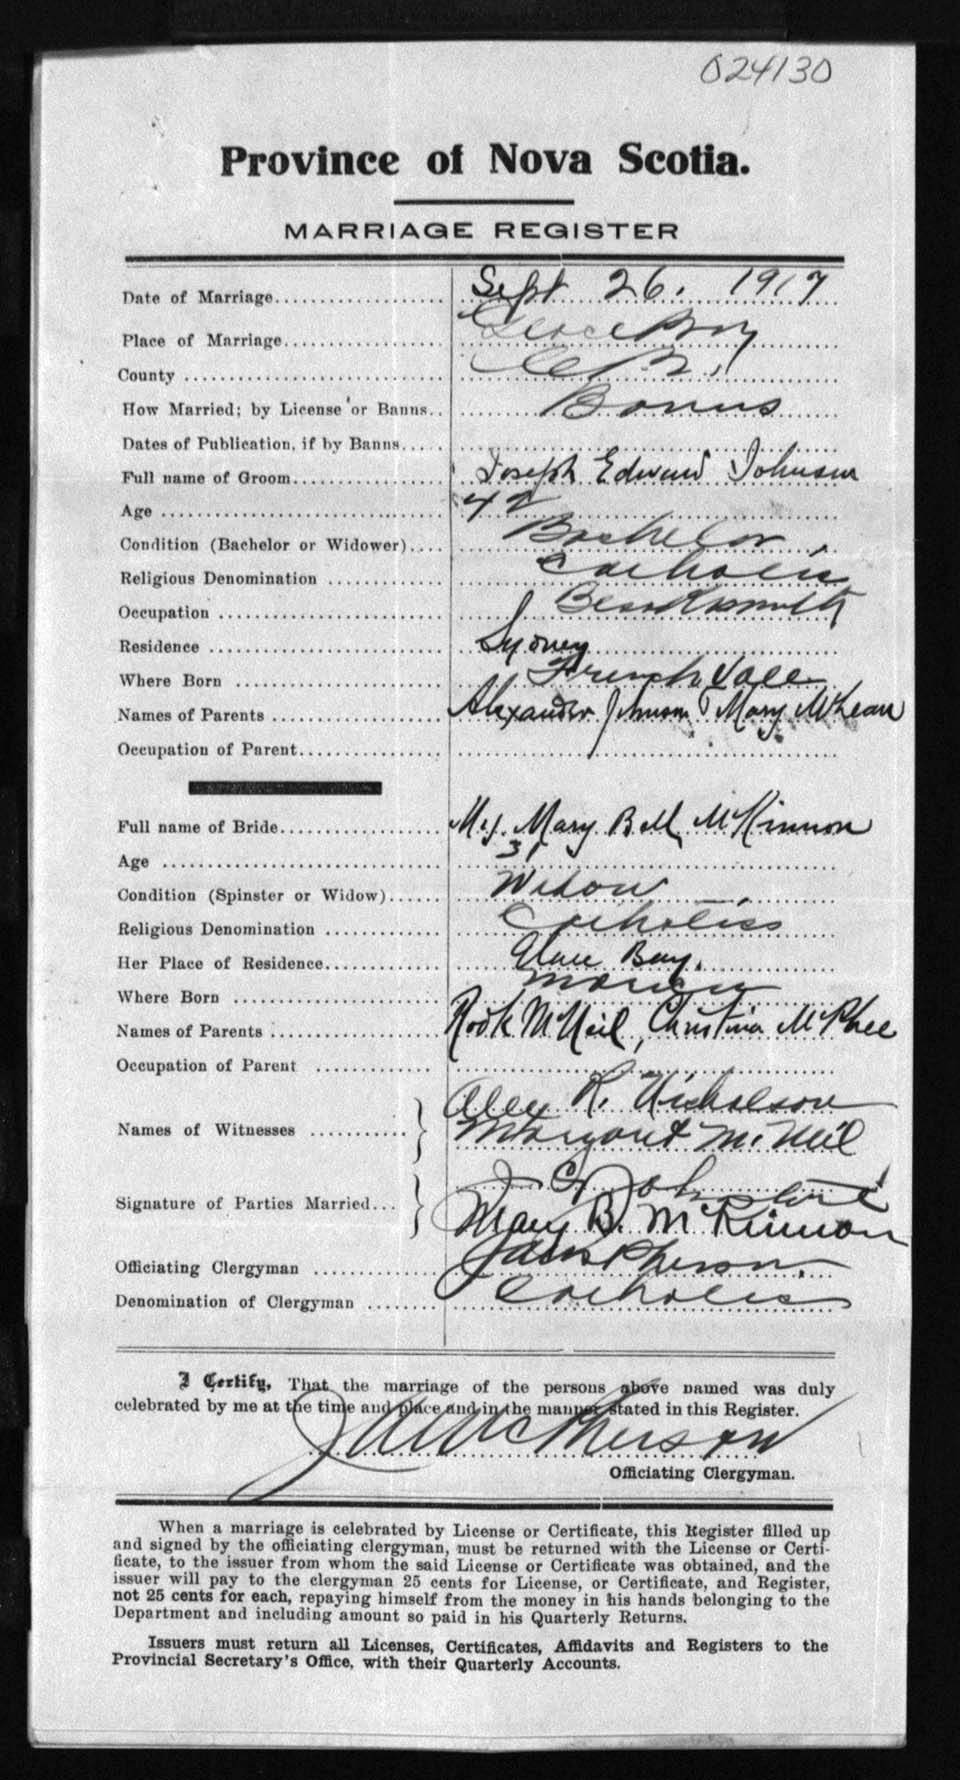 024130
Province of Nova Scotia.
MARRIAGE REGISTER
Date of Marriage Sept 26. 1917
Place of Marriage Glace Bay
County C B.
How Married; by License or Banns Banns
Dates of Publication, if by Banns
Full name of Groom Joseph Edward Johnson
Age 42
Condition (Bachelor or Widower) Bachelor
Religious Denomination Catholic
Occupation Blacksmith
Residence Sydney
Where Born French Vale
Names of Parents Alexander Johnson Mary McLean
Occupation of Parent
Full name of Bride Mrs. Mary Bell McKinnon
Age 31
Condition (Spinster or Widow) Widow
Religious Denomination Catholic
Her Place of Residence Glace Bay.
Where Born
Names of Parents McNeil, Christina McPhee
Occupation of Parent
Names of Witnesses Alex R. Nicholson
Margaret McNeil
Signature of Parties Married J
Mary B. McKinnon
Officiating Clergyman
Denomination of Clergyman Catholic
I Certify, That the marriage of the persons above named was duly
celebrated by me at the time and place and in the manner stated in this Register.
McPherson
Officiating Clergyman.
When a marriage is celebrated by License or Certificate, this Register filled up
and signed by the officiating clergyman, must be returned with the License or Certi-
ficate, to the issuer from whom the said License or Certificate was obtained, and the
issuer will pay to the clergyman 25 cents for License, or Certificate, and Register,
not 25 cents for each, repaying himself from the money in his hands belonging to the
Department and including amount so paid in his Quarterly Returns.
Issuers must return all Licenses, Certificates, Affidavits and Registers to the
Provincial Secretary's Office, with their Quarterly Accounts.